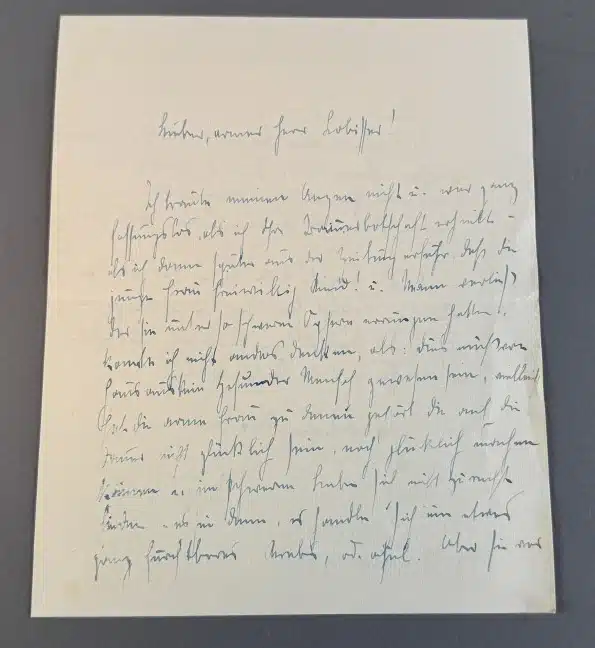 Lieber, armer Herr Lobisser!
Ich traute meinen Augen nicht u. war ganz
fassungslos, als ich Ihre Trauerbotschaft erhielt –
als ich dann später aus der Zeitung erfuhr, daß die
junge Frau freiwillig Kind! u. Mann verließ
der sie unter so schweren Opfern errungen hatte,
konnte ich nicht anders denken, als: dies muß von
Haus aus kein gesunder Mensch gewesen sein, vielleicht
hat die arme Frau zu denen gehört die auf die
Dauer nicht glücklich sein, noch glücklich machen
können u. im schweren Leben sich nicht zurecht
finden – es sei denn, es handle sich um etwas
ganz furchtbares Krebs, od. ähnl. Aber sie war